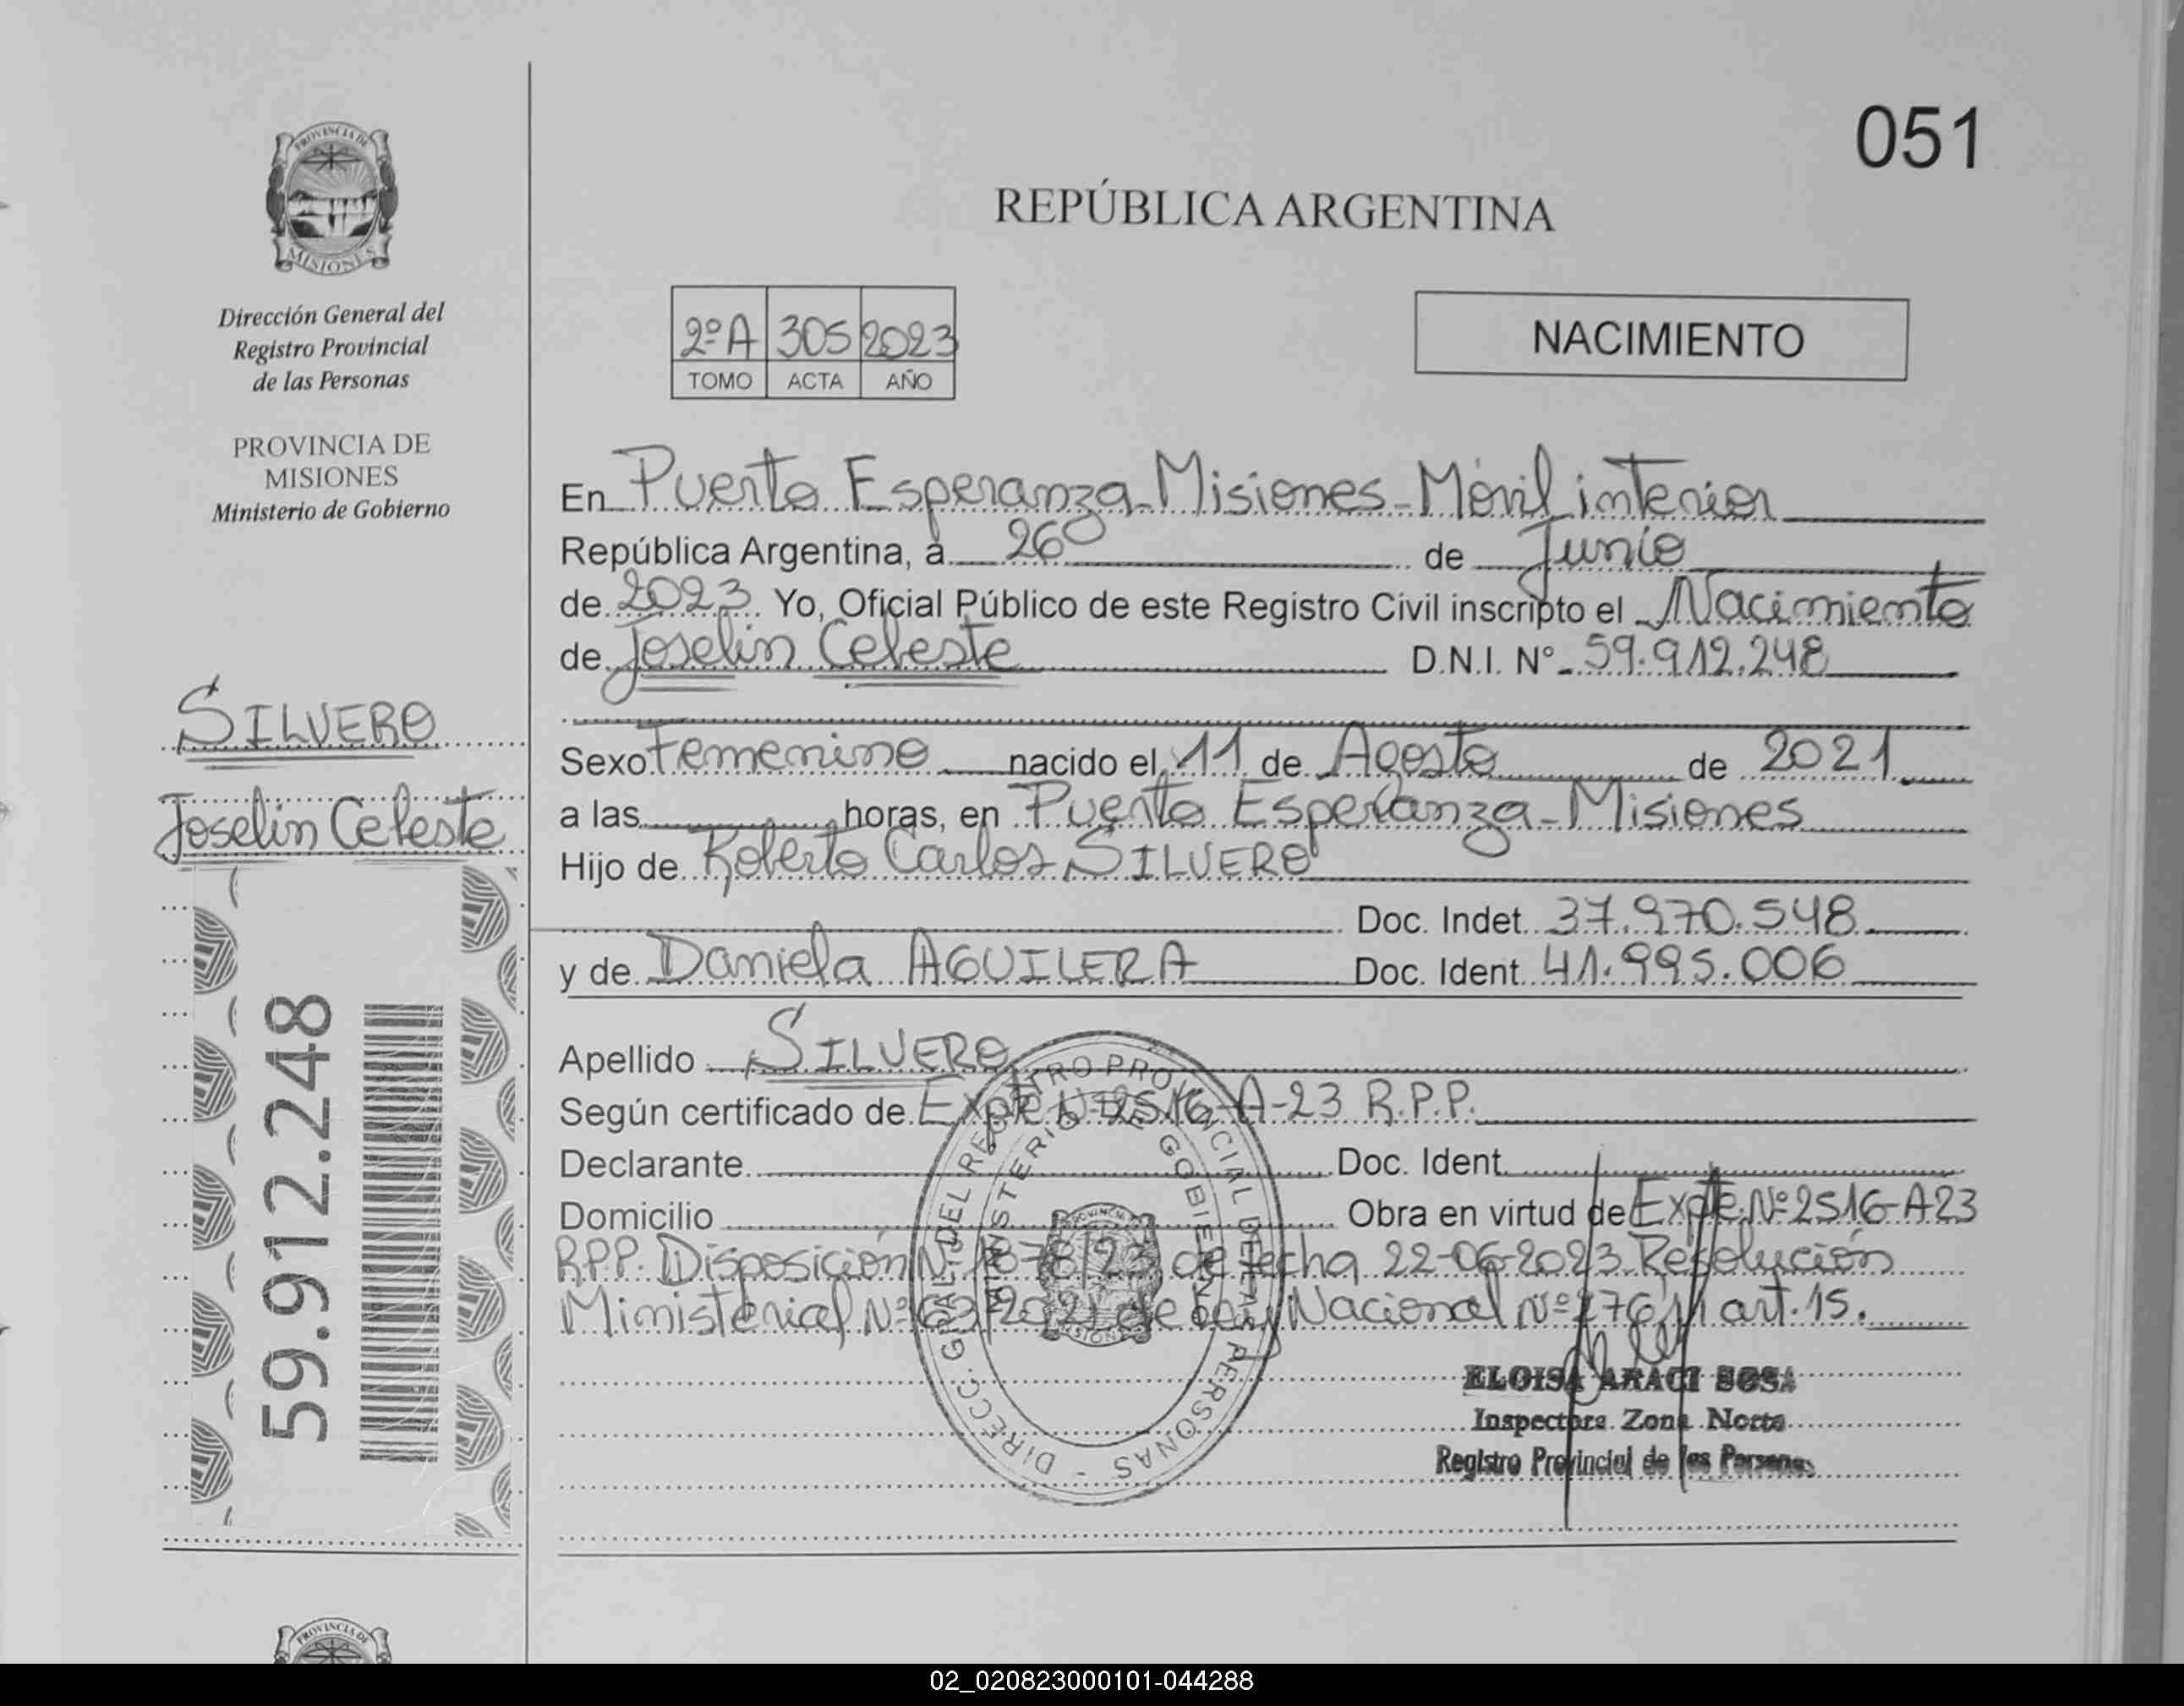 PROVINCIA DE
MISIONES
Dirección General del
Registro Provincial
de las Personas
PROVINCIA DE
MISIONES
Ministerio de Gobierno
SILVERO
Joselin Celeste
59.912.248
051
REPÚBLICA ARGENTINA
2ºA 305 2023
TOMO ACTA AÑO
NACIMIENTO
En Puerto Esperanza-Misiones-Móvil interior
República Argentina, a 26 de Junio
de 2023. Yo, Oficial Público de este Registro Civil inscripto el Nacimiento
de Joselin Celeste D.N.I. Nº 59.912.248
Sexo Femenino nacido el 11 de Agosto de 2021
a las horas, en Puerto Esperanza-Misiones
Hijo de Roberto Carlos SILVERO
Doc. Indet. 37.970.548
y de Daniela AGUILERA Doc. Ident. 41.995.006
Apellido SILVERO
Según certificado de Expte Nº 2516-A-23 R.P.P.
Declarante Doc. Ident.
Domicilio Obra en virtud de Expte.Nº 2516-A23
RPP. Disposición Nº 1878/23 de fecha 22-06-2023 Resolución
Ministerial Nº 63/2021 de Ley Nacional nº 27611 art. 15.
DIRECC. GRAL. DEL REGISTRO PROVINCIAL DE LAS PERSONAS -
MINISTERIO DE GOBIERNO
PROVINCIA DE
MISIONES
ELOISA ARACI SOSA
Inspectora Zona Norte
Registro Provincial de las Personas
PROVINCIA DE
02_020823000101-044288